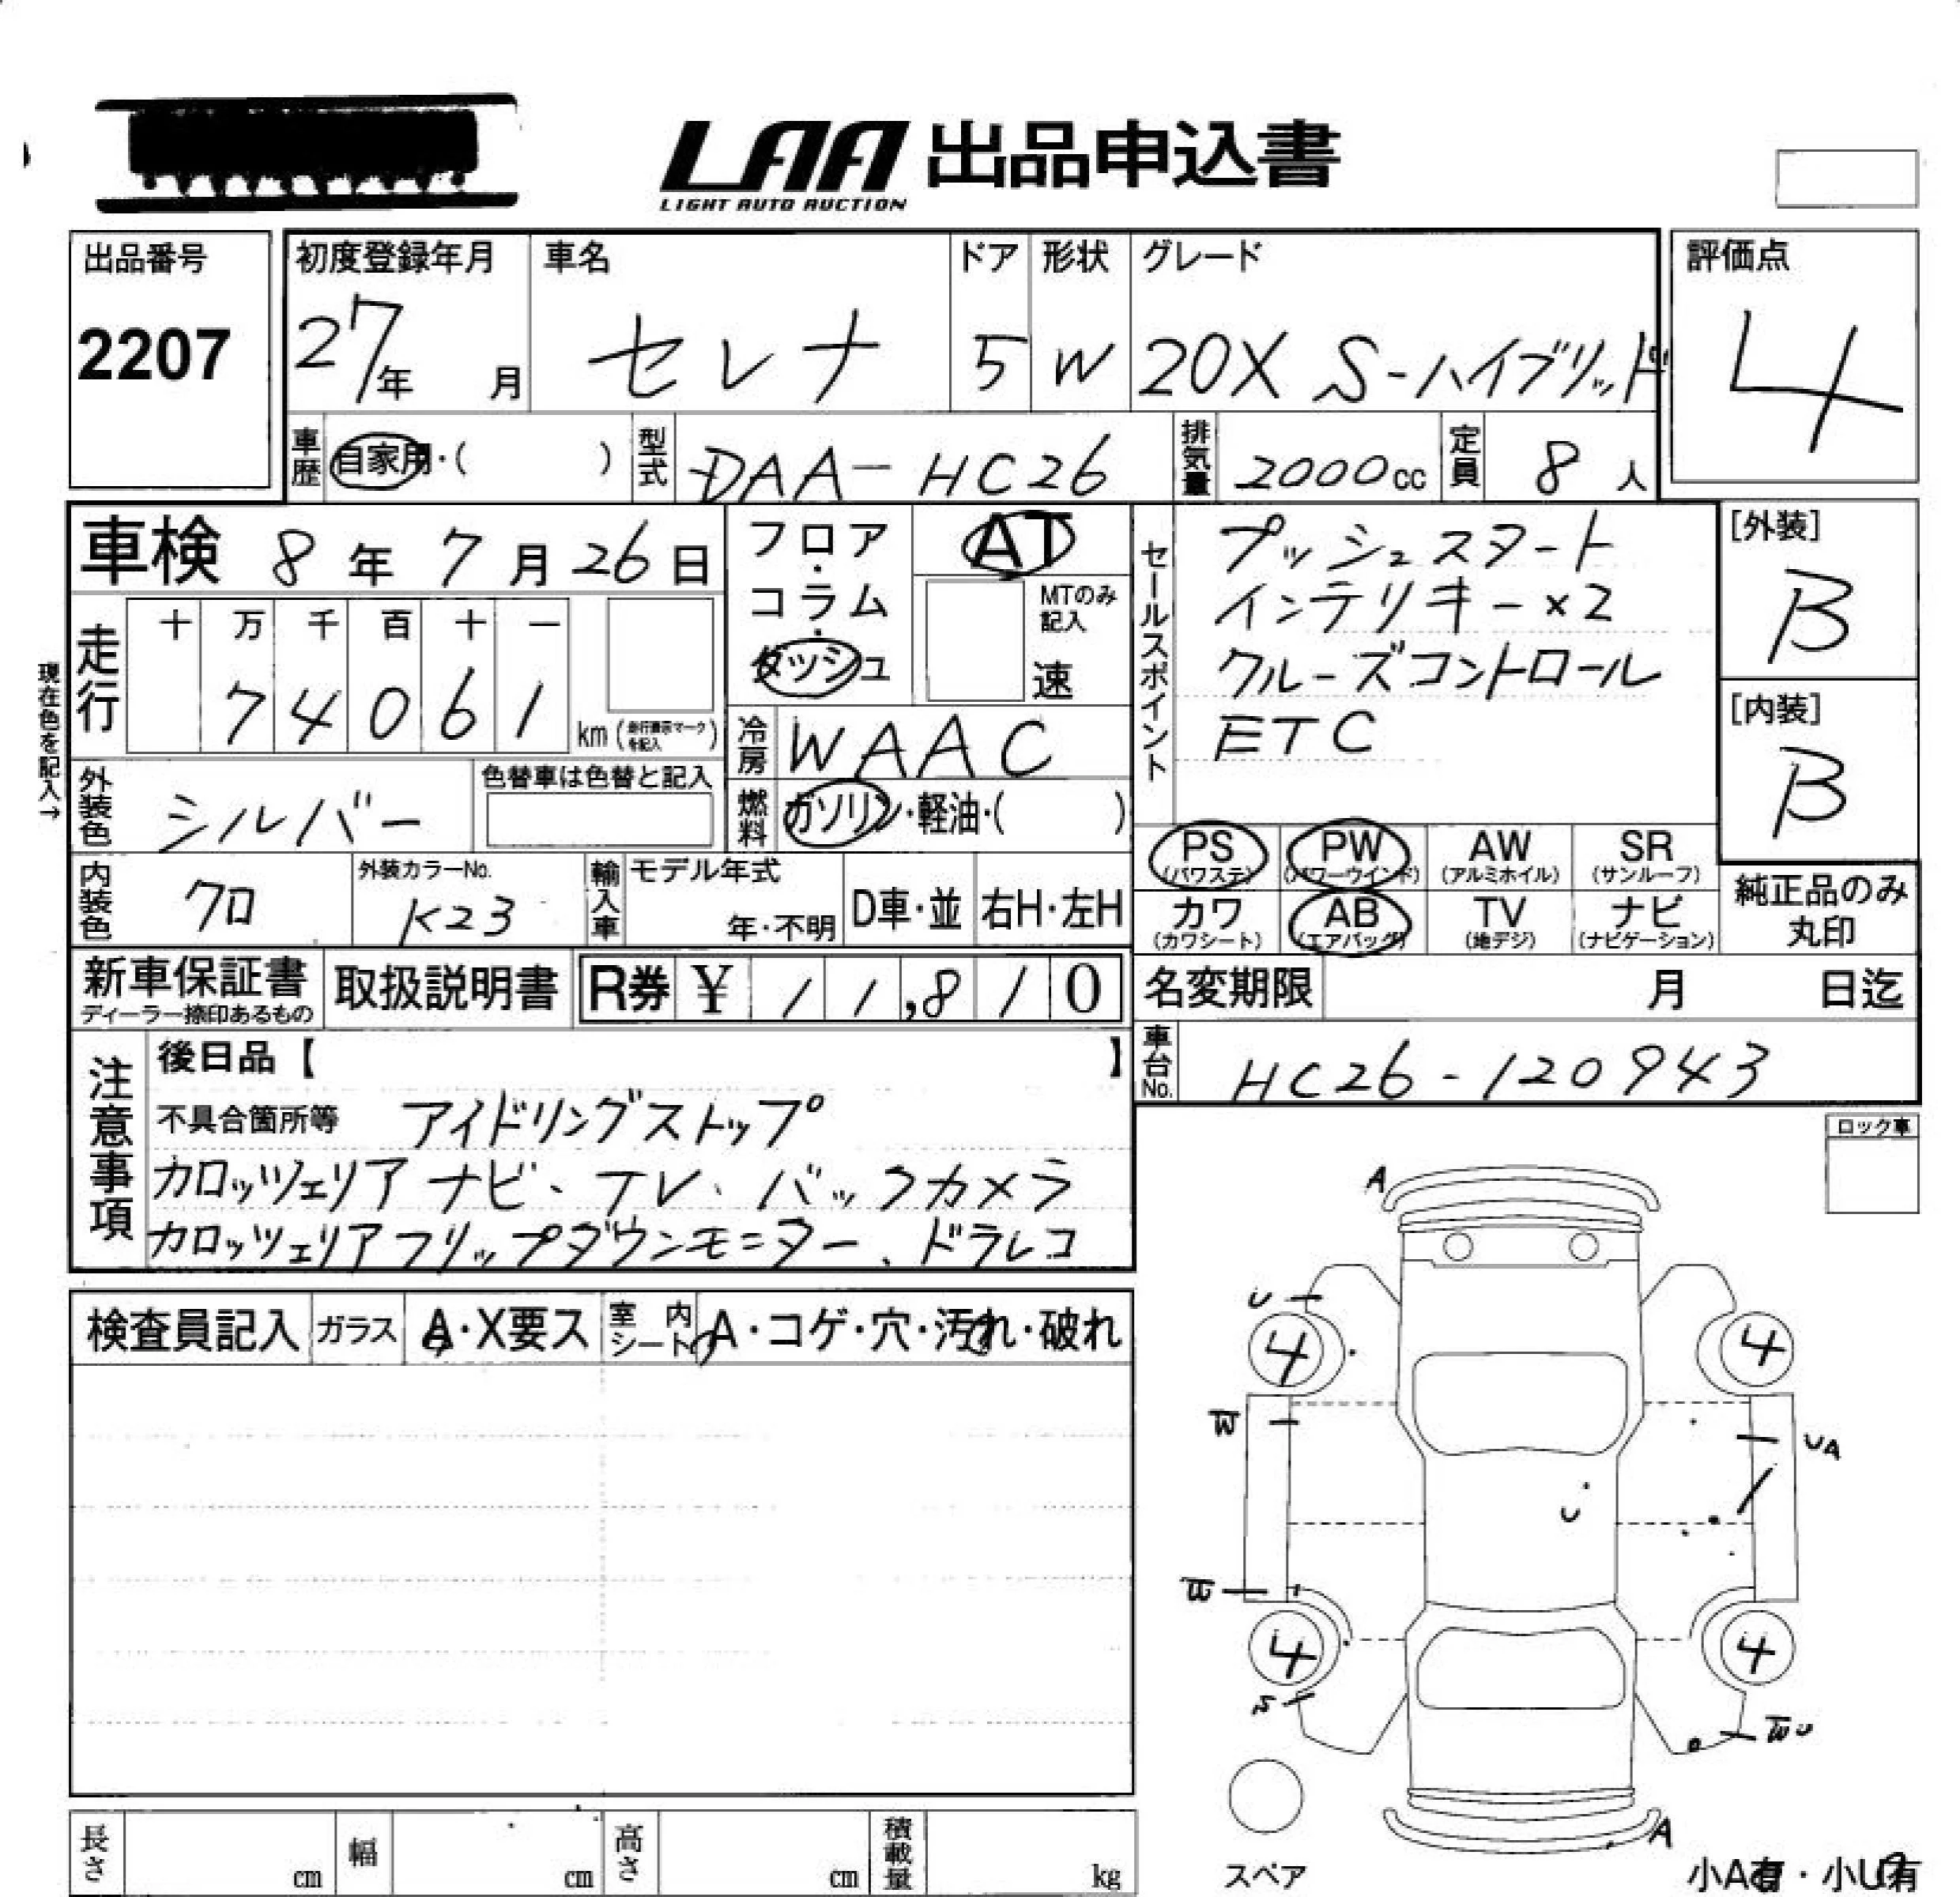 LAA 出品申込書
LIGHT AUTO AUCTION
出品番号
2207
初度登録年月
27年 月
車名
セレナ
ドア
5
形状
W
グレード
20X S-ハイブリッド
評価点
4
車歴
自家用・( )
型式
DAA-HC26
排気量
2000cc
定員
8人
車検 8年 7月 26日
走行
十 万 千 百 十 一
7 4 0 6 1 km
現在色を記入→
フロア・コラム・ダッシュ
AT
MTのみ記入
速
冷房
WAAC
燃料
ガソリン・軽油・( )
セールスポイント
プッシュスタート
インテリキー×2
クルーズコントロール
ETC
[外装]
B
[内装]
B
外装色
シルバー
色替車は色替と記入
内装色
クロ
外装カラーNo.
K23
輸入車
モデル年式
年・不明
D車・並
右H・左H
PS
(パワステ)
PW
(パワーウインド)
AW
(アルミホイル)
SR
(サンルーフ)
カワ
(カワシート)
AB
(エアバッグ)
TV
(地デジ)
ナビ
(ナビゲーション)
純正品のみ
丸印
新車保証書
ディーラー捺印あるもの
取扱説明書
R券 ¥ 11,810
名変期限
月 日迄
車台No.
HC26-120943
注意事項
後日品【 】
不具合箇所等 アイドリングストップ
カロッツェリア ナビ、テレ、バックカメラ
カロッツェリアフリップダウンモニター、ドラレコ
ロック車
検査員記入
ガラス
A・X要ス
室内
シート
A・コゲ・穴・汚れ・破れ
A
U
4
4
W
UA
U
W
4
4
S
WU
A
スペア
小A有・小U有
長さ
cm
幅
cm
高さ
cm
積載量
kg